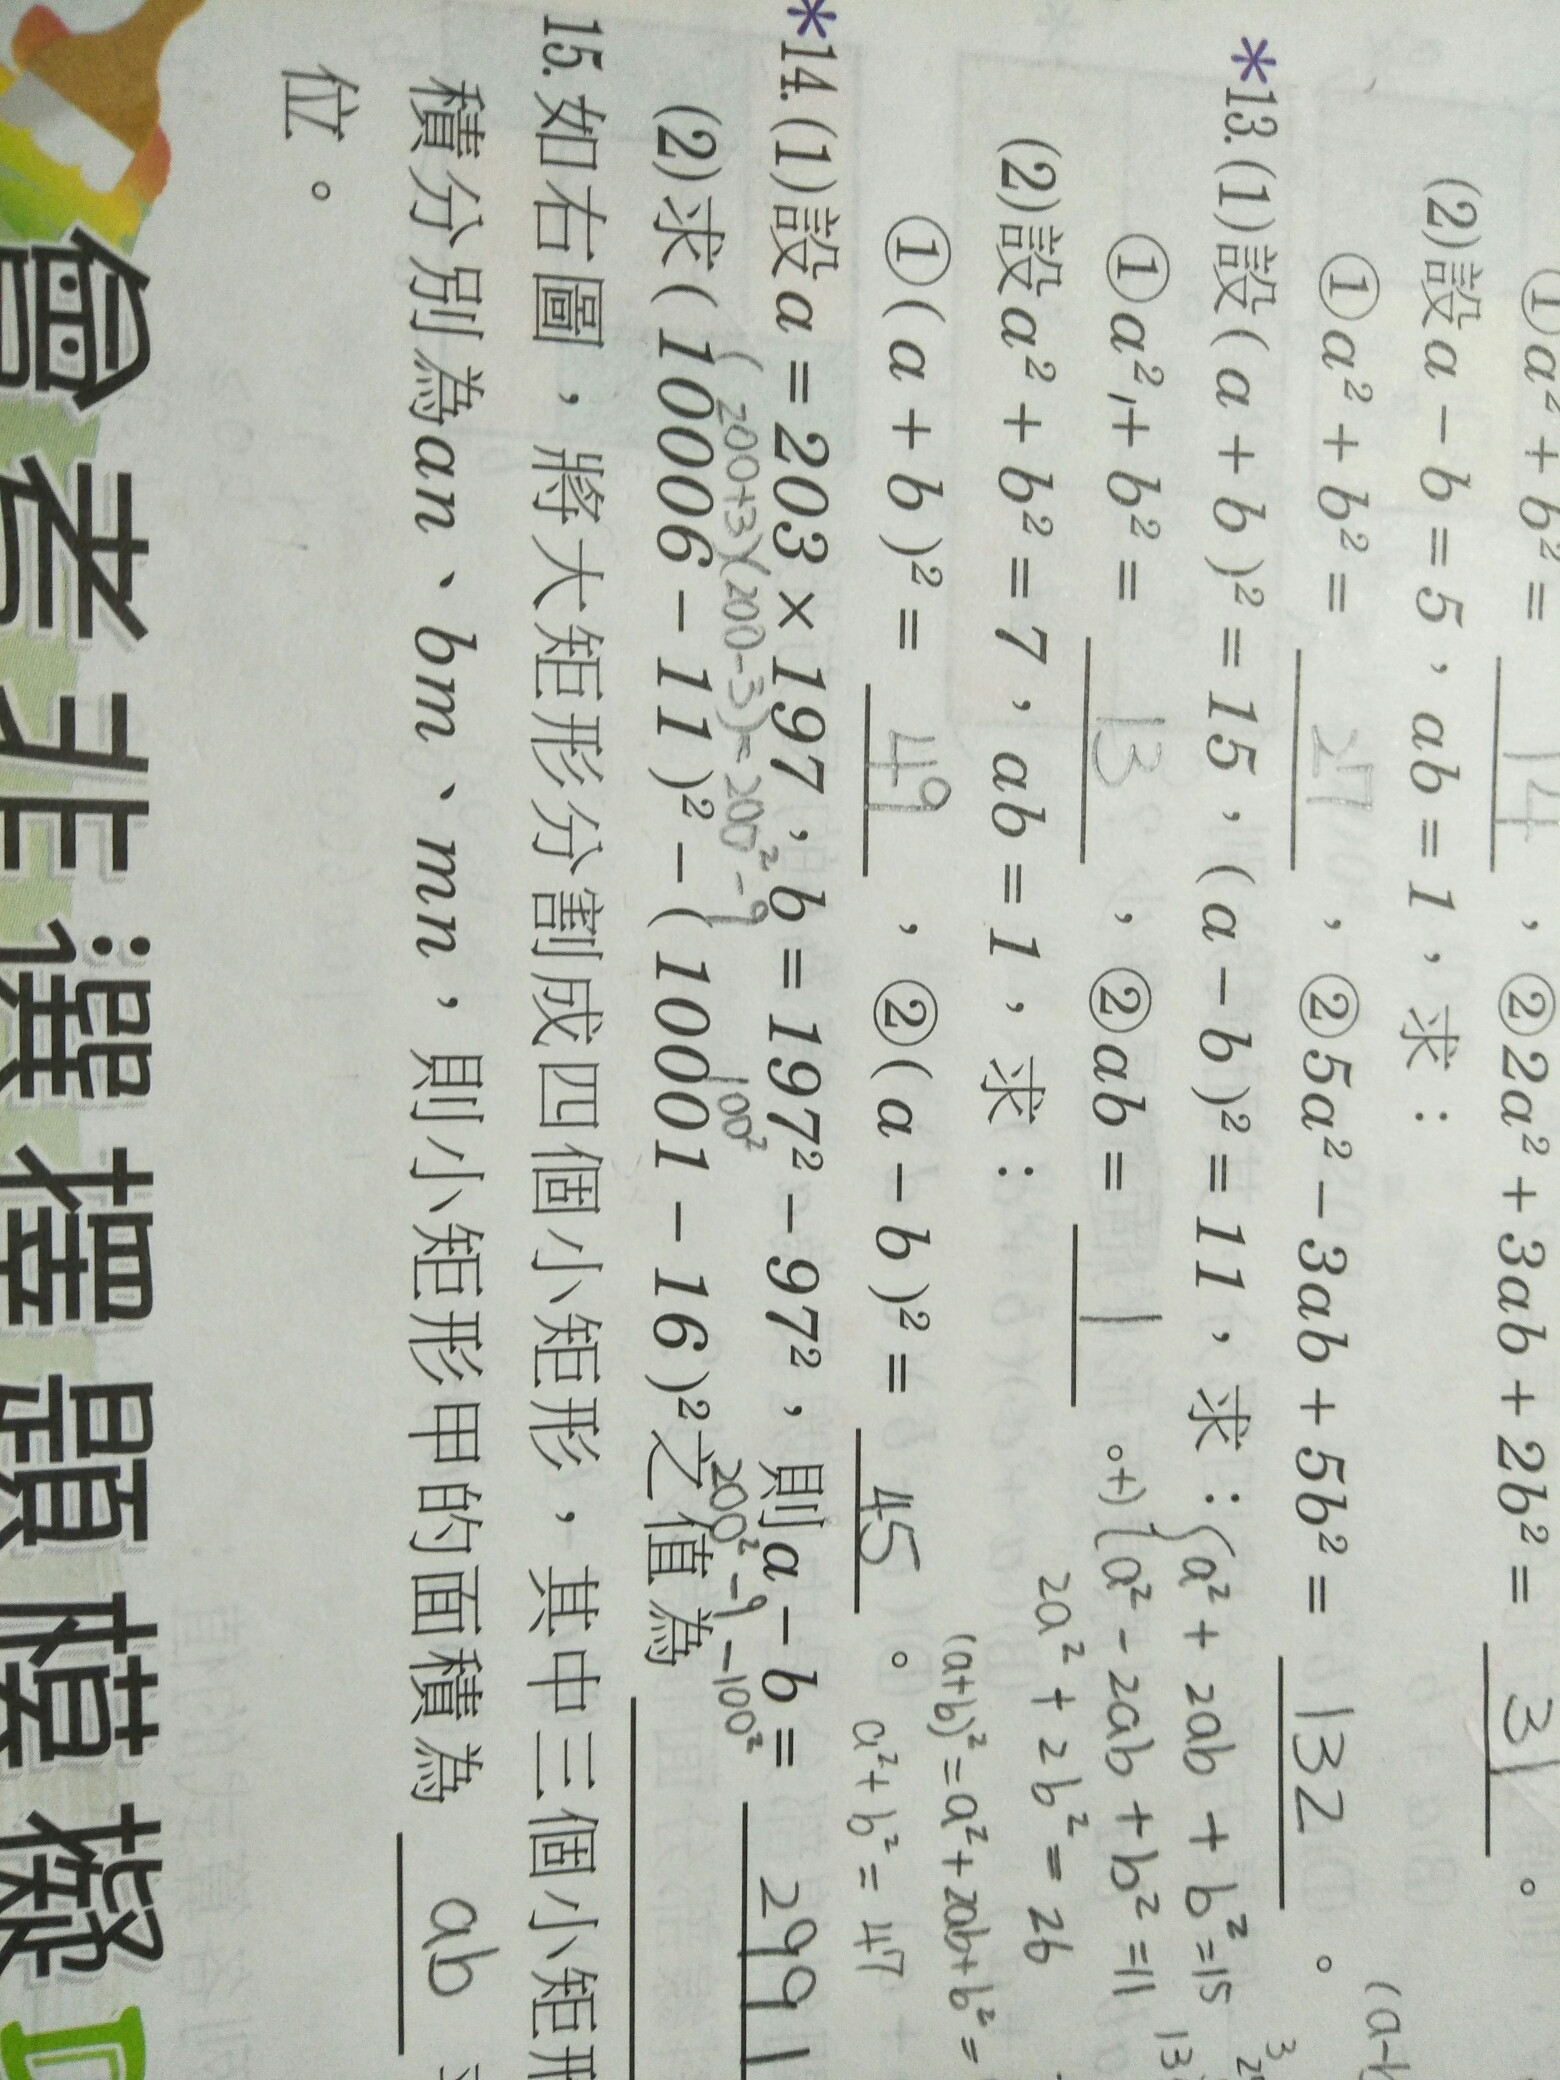 ①a²+b²= 14 ，②2a²+3ab+2b²= 31 。
(2)設a-b=5，ab=1，求：
①a²+b²= 27 ，②5a²-3ab+5b²= 132 。
*13.(1)設(a+b)²=15，(a-b)²=11，求：{a²+2ab+b²=15
①a²+b²= 13 ，②ab= 1 。+) {a²-2ab+b²=11
2a²+2b²=26
(2)設a²+b²=7，ab=1，求：
(a+b)²=a²+2ab+b²=
①(a+b)²= 49 ，②(a-b)²= 45 。
a²+b²=47
*14.(1)設a=203×197，b=197²-97²，則a-b= 2991
(200+3)(200-3)=200²-9 100² 200²-9-100²
(2)求(10006-11)²-(10001-16)²之值為
15.如右圖，將大矩形分割成四個小矩形，其中三個小矩形
積分別為an、bm、mn，則小矩形甲的面積為 ab
位。
會考非選擇題模擬